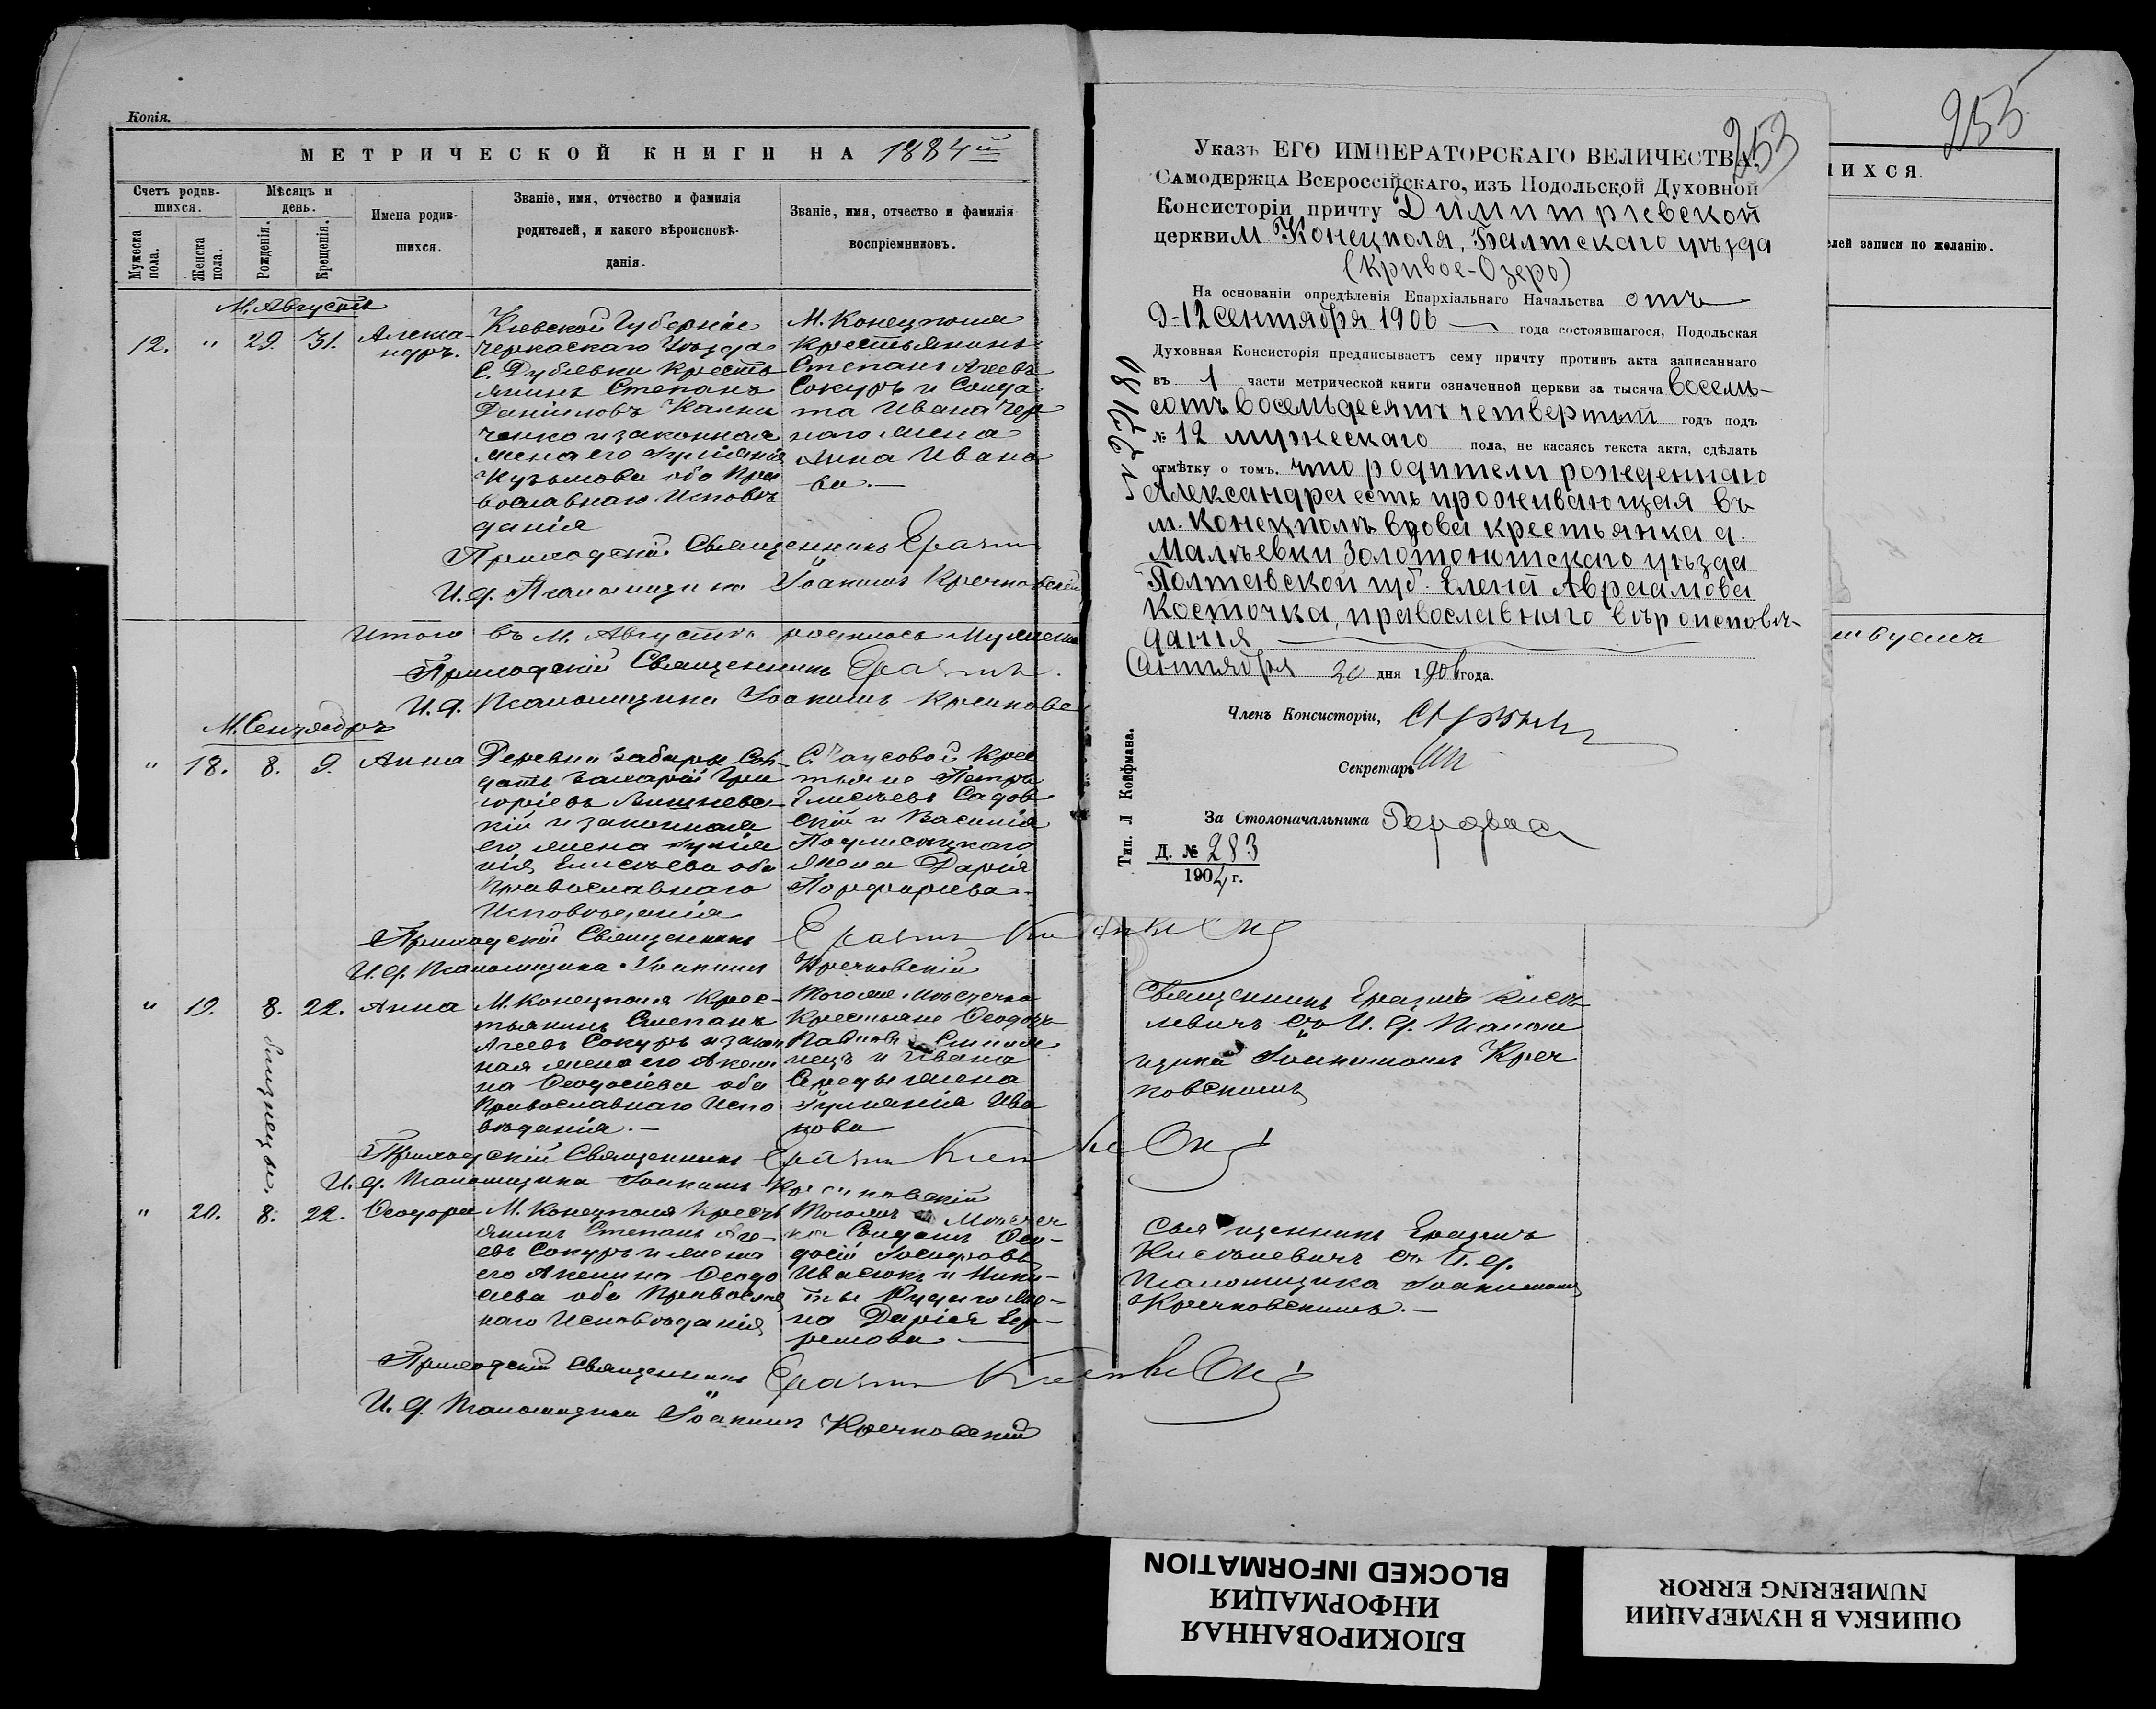 Копія.
МЕТРИЧЕСКОЙ КНИГИ НА 1884й
Счетъ родив-
шихся.
Мѣсяцъ и
день.
Имена родив-
шихся.
Званіе, имя, отчество и фамилія
родителей, и какого вѣроисповѣ-
данія.
Званіе, имя, отчество и фамилія
воспріемниковъ.
Мужеска
пола.
Женска
пола.
Рожденія.
Крещенія.
М. Августъ
12. " 29. 31. Алекса-
ндръ.
Кіевской Губерніи
Черкаскаго Уѣзда
С. Дубіевки Кресть
янинъ Степанъ
Даніиловъ
ченко и законная
жена его Іуліанія
Кузьмова оба Пра
вославнаго Исповѣ
данія
М. Конецполя
Крестьянинъ
Степанъ Агеевъ
Сокуръ и Солда
та Ивана Чер
наго жена
Анна Ивано
ва.—
Приходскій Священникъ Еразмъ
И. д. Псаломщика Іоакимъ Кречковскій
Итого въ М. Августѣ родилось Мужеска
Приходскій Священникъ Еразмъ
И. д. Псаломщика Іоакимъ Кречковс
М. Сентябрь
" 18. 8. 9. Анна
Деревни Забары Сол-
датъ Захарій Гри
горіевъ Вишневс-
кій и законная
его жена Іуліа
нія Елисѣева оба
Православнаго
Исповѣданія
С. Чаусовой Крес
тьяне Петръ
Елисѣевъ Садов
скій и Василія
жена Дарія
Порфиріева.
Приходскій Священникъ Еразмъ
И. д. Псаломщика Іоакимъ Кречковскій
" 19. 8. 22. Анна
близнецы.
М. Конецполя Крес-
тьянинъ Степанъ
Агеевъ Сокуръ и закон
ная жена его Аксин
на Ѳеодосіева оба
Православнаго Испо
вѣданія.—
Тогоже Мѣстечка
Крестьяне Ѳеодоръ
и Ивана
Середы жена
Іуліанія Ива
нова
Приходскій Священникъ Еразмъ
И. д. Псаломщика Іоакимъ Кречковскій
" 20. 8. 22. Ѳеодора
М. Конецполя Крестъ
янинъ Степанъ Аге-
евъ Сокуръ и жена
его Аксинна Ѳеодо
сіева оба Православ
наго Исповѣданія
Тогожъ Мѣстеч
ка Ѳео-
досій Іосифовъ
Ивасюкъ и Ники-
ты Рудого же-
на Дарія Еф-
ремова —
Приходскій Священникъ Еразмъ
И. д. Псаломщика Іоакимъ Кречковскій
253
Указъ ЕГО ИМПЕРАТОРСКАГО ВЕЛИЧЕСТВА,
Самодержца Всероссійскаго, изъ Подольской Духовной
Консисторіи причту Димитріевской
церкви М. Конецполя, Балтскаго уѣзда
(Кривое-Озеро)
На основаніи опредѣленія Епархіальнаго Начальства отъ
9-12 сентября 1906 — года состоявшагося, Подольская
Духовная Консисторія предписываетъ сему причту противъ акта записаннаго
въ 1 части метрической книги означенной церкви за тысяча восемь-
сотъ восемьдесятъ четвертый годъ подъ
№ 12 мужескаго пола, не касаясь текста акта, сдѣлать
отмѣтку о томъ. что родители рожденнаго
Александра есть проживающая въ
м. Конецполѣ вдова крестьянка д.
Малѣевки Золотоношскаго уѣзда
Полтавской губ. Елена Авраамова
Косточка, православнаго вѣроисповѣ-
данія
Сентября 20 дня 1906 года.
Членъ Консисторіи,
Секретарь
За Столоначальника
Д. № 283
1904 г.
№ 27180
Тип. Л Койфмана.
255
ШИХСЯ
лей записи по желанію.
ствуетъ
Священникъ Еразмъ Кисѣ-
левичъ съ И. д. Псалом
щика Іоакимомъ Креч
ковскимъ
Священникъ Еразмъ
Кисѣлевичъ съ И. д.
Псаломщика Іоакимомъ
Кречковскимъ.—
БЛОКИРОВАННАЯ
ИНФОРМАЦИЯ
BLOCKED INFORMATION
ОШИБКА В НУМЕРАЦИИ
NUMBERING ERROR